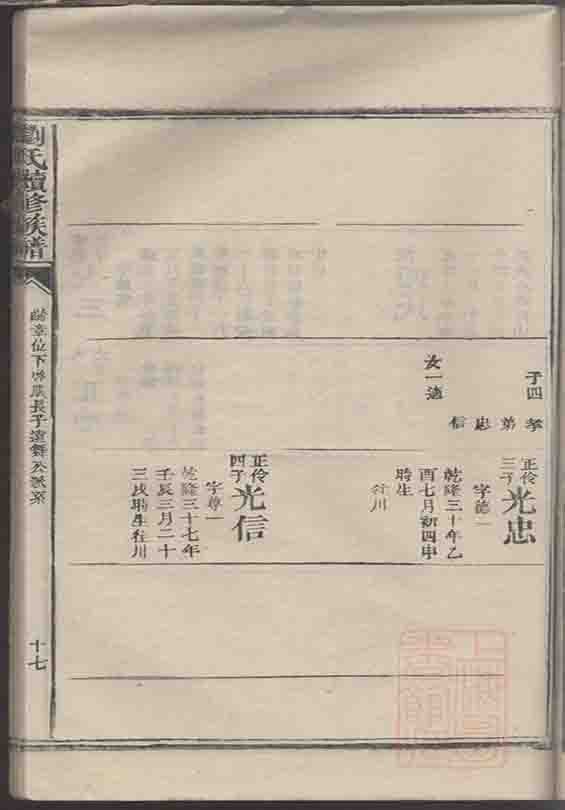 子四
孝
弟
忠
信
女一適
正伶
三子
光忠
字德一
乾隆三十年乙
酉七月初四申
時生
往川
正伶
四子
光信
字尊一
乾隆三十七年
壬辰三月二十
三戌時生往川
劉氏續修族譜
位下
長子遠
公派系
十七